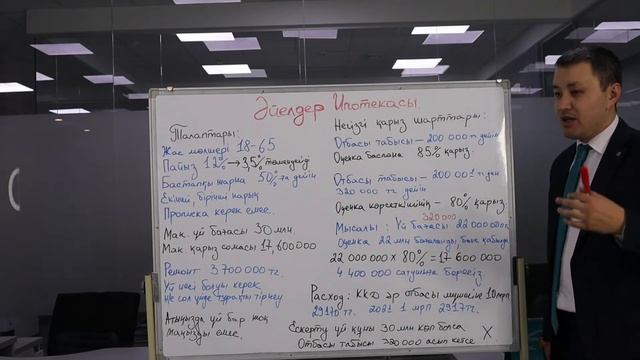 Әйелдер Ипотекасы
Талаптары:
Жас мөлшері 18-65
Пайыз 12% → 3,5% төмендейді
Бастапқы жарна 50%-ға дейін
Екінші, бірінші нарық
Прописка керек емес.
Мак. үй бағасы 30 млн
Мак. қарыз сомасы 17,600000
Ремонт 3 700 000 тг.
Үй иесі болуы керек
не сол үйде тұрақты тіркеу
Атыңызда үй бар жоқ
маңызды емес.
Негізгі қарыз шарттары:
Отбасы табысы - 200 000 тг дейін
Оценка баслана 85% қарыз.
Отбасы табысы - 200 001 тг дан
320 000 тг дейін
Оценка көрсеткішінің - 80% қарыз
320 000
Мысалы: Үй бағасы 22 000 000
Оценка 22 млн бағаланды, банк қабылда
22 000 000 x 80% = 17 600 000
4 400 000 сатушыға бересіз.
Расход: ККД әр отбасы мүшесіне 10 мрп
29170 тг. 2021 1 мрп 2917 тг.
Ескерту үй құны 30 млн көп болса
Отбасы табысы 320 000 асып кетсе X